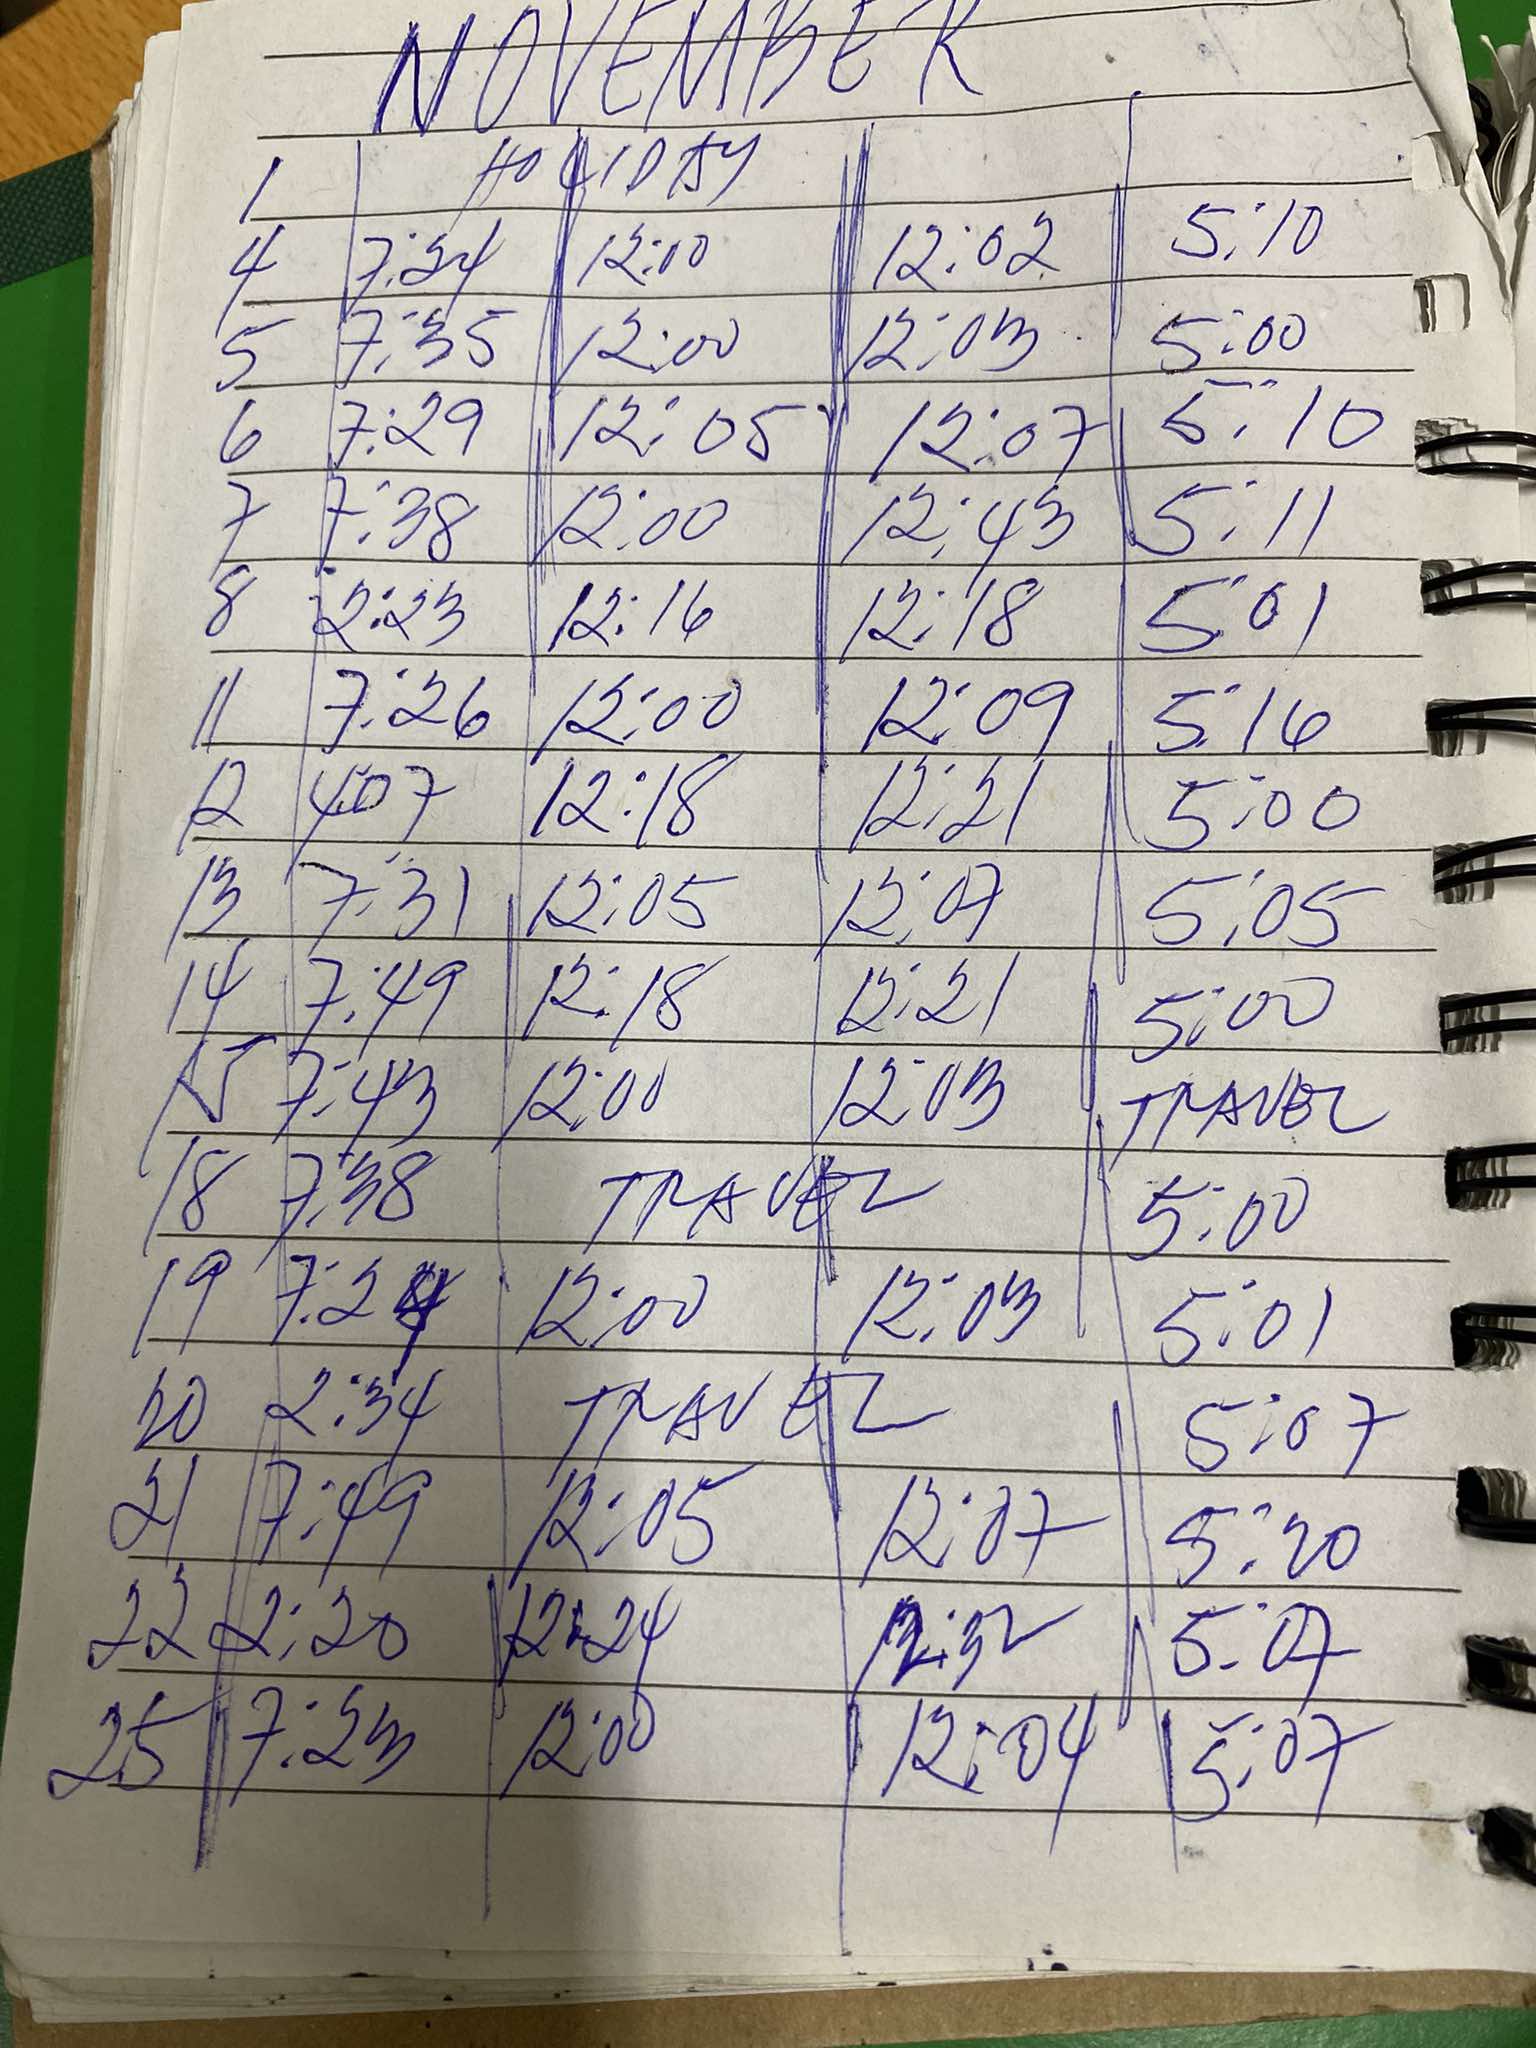 NOVEMBER
1 HOLIDAY
4 7:24 12:00 12:02 5:10
5 7:35 12:00 12:03 5:00
6 7:29 12:05 12:07 5:10
7 7:38 12:00 12:43 5:11
8 2:23 12:16 12:18 5:01
11 7:26 12:00 12:09 5:16
12 4:07 12:18 12:21 5:00
13 7:31 12:05 12:07 5:05
14 7:49 12:18 12:21 5:00
15 7:43 12:00 12:03 TRAVEL
18 7:38 TRAVEL 5:00
19 12:00 12:03 5:01
20 2:34 TRAVEL 5:07
21 7:49 12:05 12:07 5:20
22 2:20 12:24 12:32 5:07
25 7:23 12:00 12:04 5:07